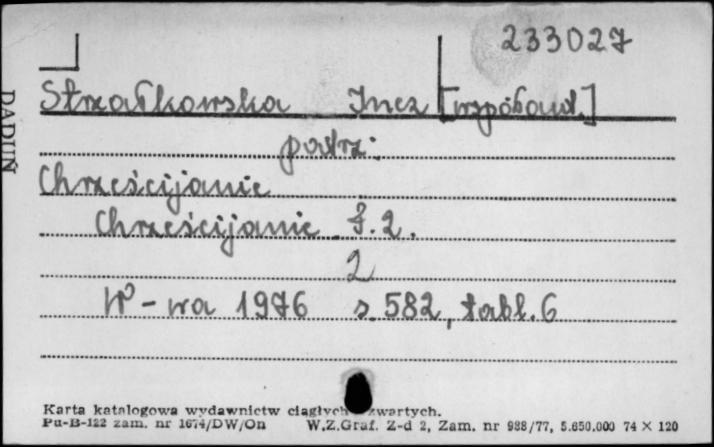 233027
Strzałkowska Inez [współaut.]
patrz:
Chrześcijanie
Chrześcijanie T. 2.
2
W-wa 1976 s. 582, tabl. 6
Karta katalogowa wydawnictw ciągłych zwartych.
Pu-B-122 zam. nr 1674/DW/On W.Z.Graf. Z-d 2, Zam. nr 988/77, 5.650.000 74 × 120